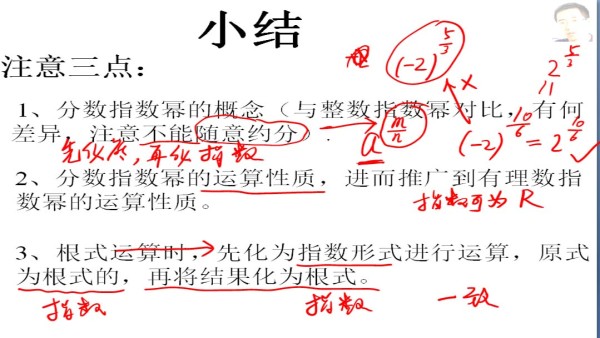 小结
注意三点:
(-2)^{5/3}
2^{5/3}
1、分数指数幂的概念（与整数指数幂对比，有何
差异，注意不能随意约分）.
a^{m/n}
(-2)^{10/6} = 2^{10/6}
先化底，再化指数
2、分数指数幂的运算性质，进而推广到有理数指
数幂的运算性质。
指数可为 R
3、根式运算时，先化为指数形式进行运算，原式
为根式的，再将结果化为根式。
指数 指数 一致